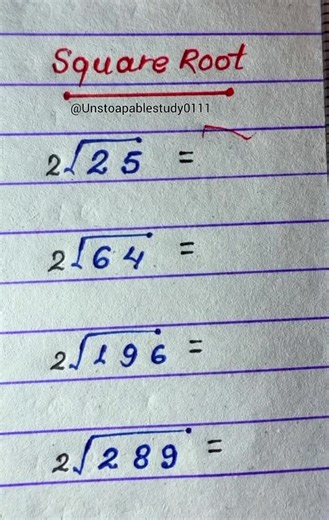 Square Root
@Unstoapablestudy0111
2√25 =
2√64 =
2√196 =
2√289 =